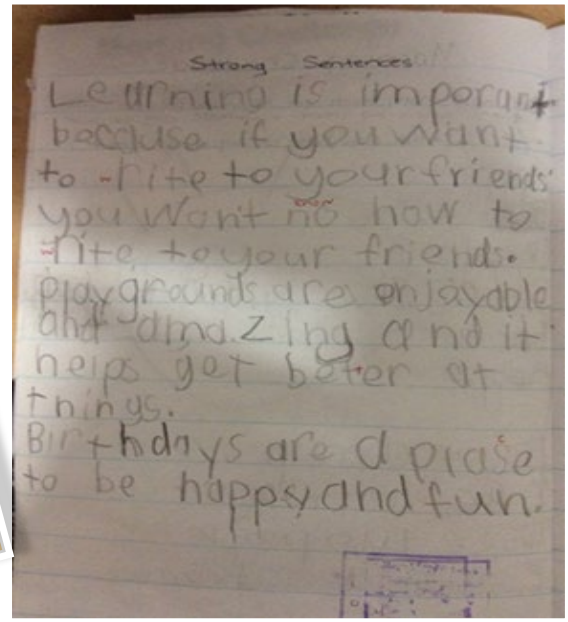 Strong Sentences
Learning is imporant
because if you want
to rite to your friends
you won't no how to
rite to your friends.
playgrounds are enjoyable
and amazing and it
helps get beter at
things.
Birthdays are a plase
to be happy and fun.